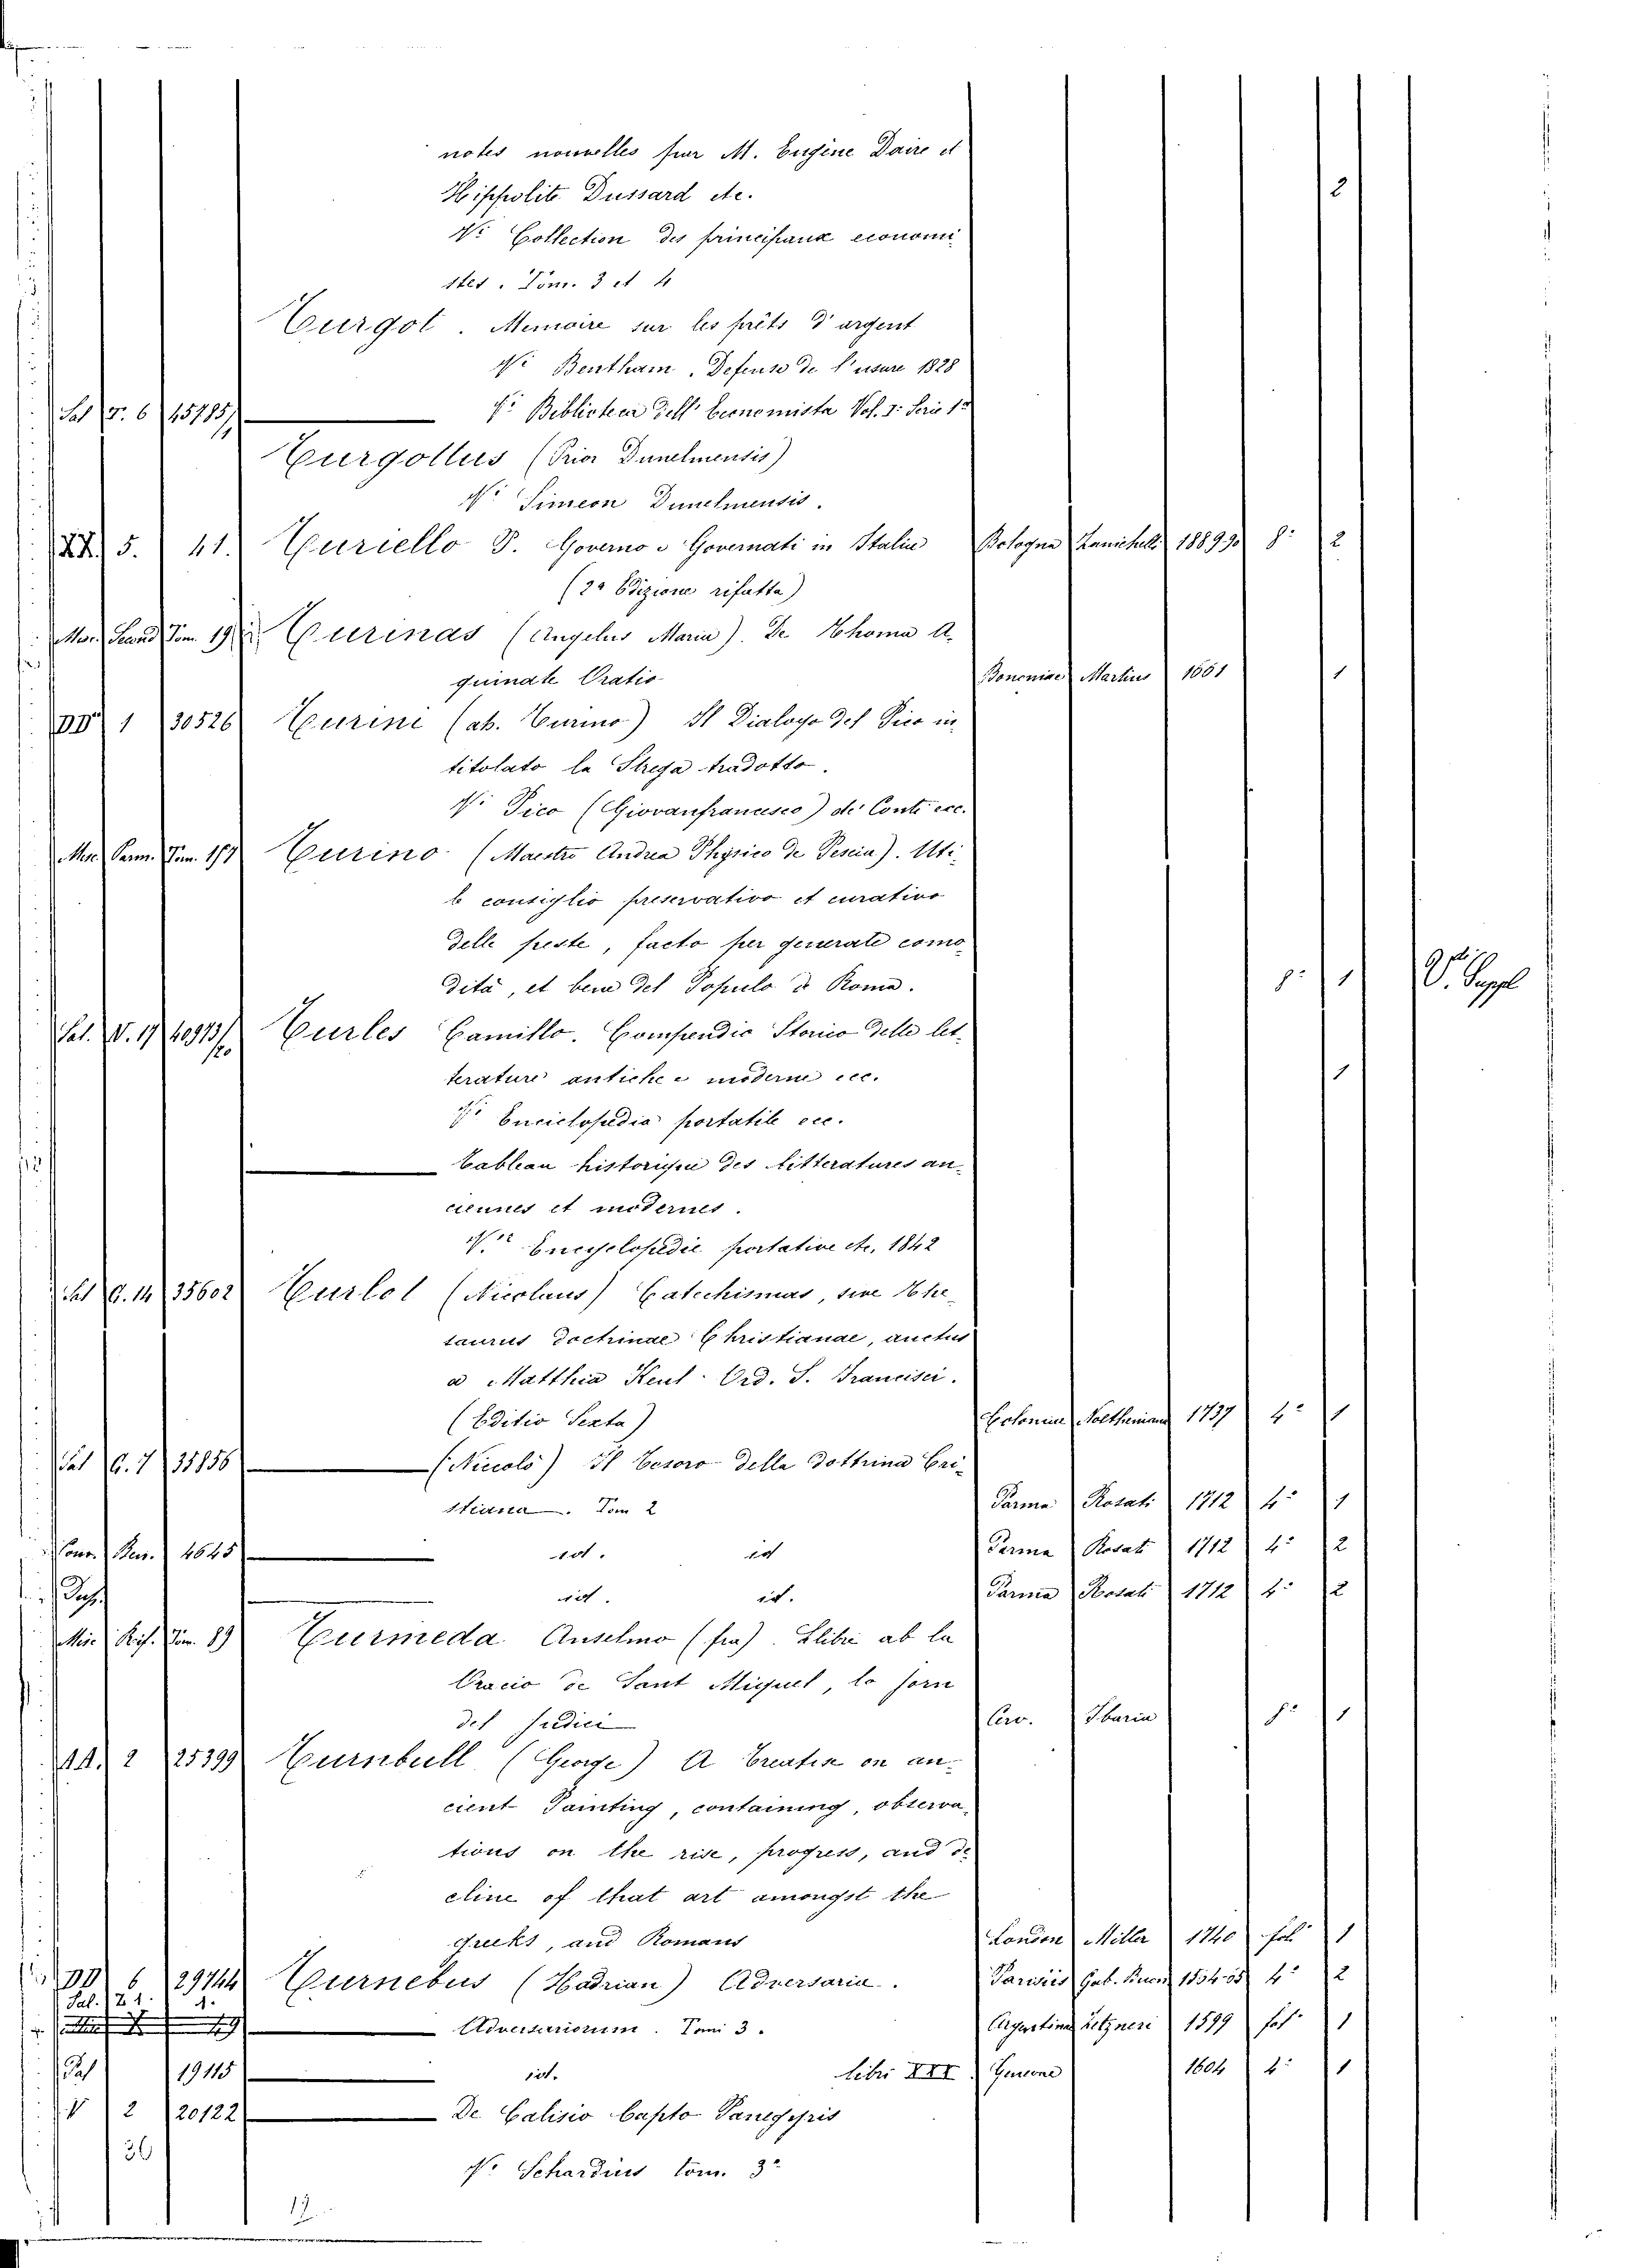 notes nouvelles par M. Eugène Daire et
Hippolite Dussard etc. 2
V. Collection des principaux economi
stes. Tom. 3 et 4
Turgot. Memoire sur les prêts d'argent
V. Bentham. Defense de l'usure 1828
Sal T. 6 45785 V. Biblioteca dell'Economista Vol. I. Serie 1ª
Turgottus (Prior Dunelmensis)
V. Simeon Dunelmensis.
5. 41. Turiello P. Governo e Governati in Italia Bologna Zanichelli 188990 8º 2
(2ª Edizione rifatta)
Tom. 19 Turinas (Angelus Maria). De Thoma A
quinate Oratio Bononiae Martius 1661 1
DD 1 30526 Turini (ab. Turino) Il Dialogo del Pico in
titolato la Strega tradotto.
V. Pico (Giovanfrancesco) de' Conti ecc.
Tom. 17 Turino (Maestro Andrea Physico de Pescia). Uti
le consiglio preservativo et curativo
delle peste, facto per generale como
dità, et bene del Populo di Roma. 8º 1 V. Suppl
Sal. V. 17 40973 Turles Camillo. Compendio Storico delle let
terature antiche e moderne ecc. 1
V. Enciclopedia portatile ecc.
Tableau historique des litteratures an
ciennes et modernes.
V. Encyclopedie portative etc. 1842
Sal G. 14 35602 Turlot (Nicolaus) Catechismus, sive The
saurus doctrinae Christianae, auctus
a Matthia Keul Ord. S. Francisci.
(Editio Sexta) Coloniae Noethenian 1737 4º 1
Sal G. 7 35856 (Niccolò) Il Tesoro della dottrina Cri
stiana. Tom 2 Parma Rosati 1712 4º 1
4645 id. id Parma Rosati 1712 4º 2
id. id. Parma Rosati 1712 4º 2
Tom. 89 Turmeda Anselmo (fra). Llibre ab la
Oracio de Sant Miquel, lo jorn
del judici Cerv. Ibarra 8º 1
AA. 2 25399 Turnbull (George) A Treatise on an
cient Painting, containing, observa
tions on the rise, progress, and de
cline of that art amongst the
Greeks, and Romans London Miller 1740 fol 1
DD 6 29744 Turnebus (Hadrian) Adversaria. Parisiis Gab. Buon 1564-65 4º 2
Sal. Z 1. 1. Adversariorum. Tomi 3. Argentinae Zetzneri 1599 fol. 1
Sal 19115 id. libri XXX Gervone 1604 4º 1
V 2 20122 De Calisio Capto Panegyris
36 V. Schardius tom. 3º
17